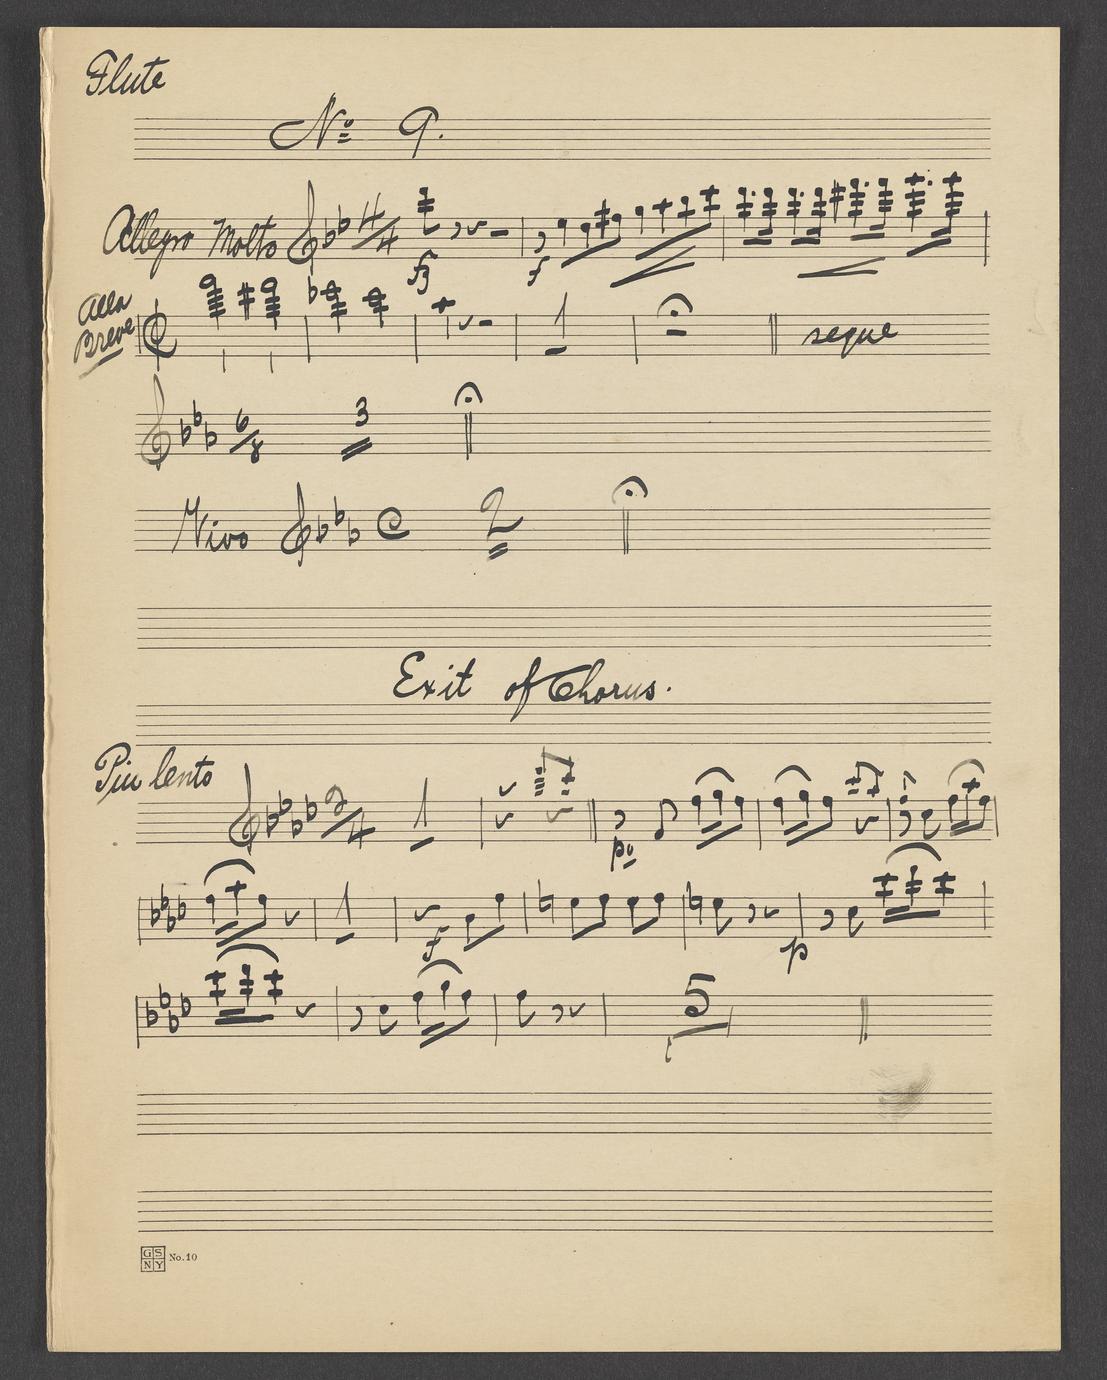 Flute
No 9.
Allegro Molto 4/4
fz f
Alla
Breve
1 segue
6/8 3
Vivo 2
Exit of Chorus.
Piu lento 2/4 1
po
1 f p
5
GS
NY No. 10